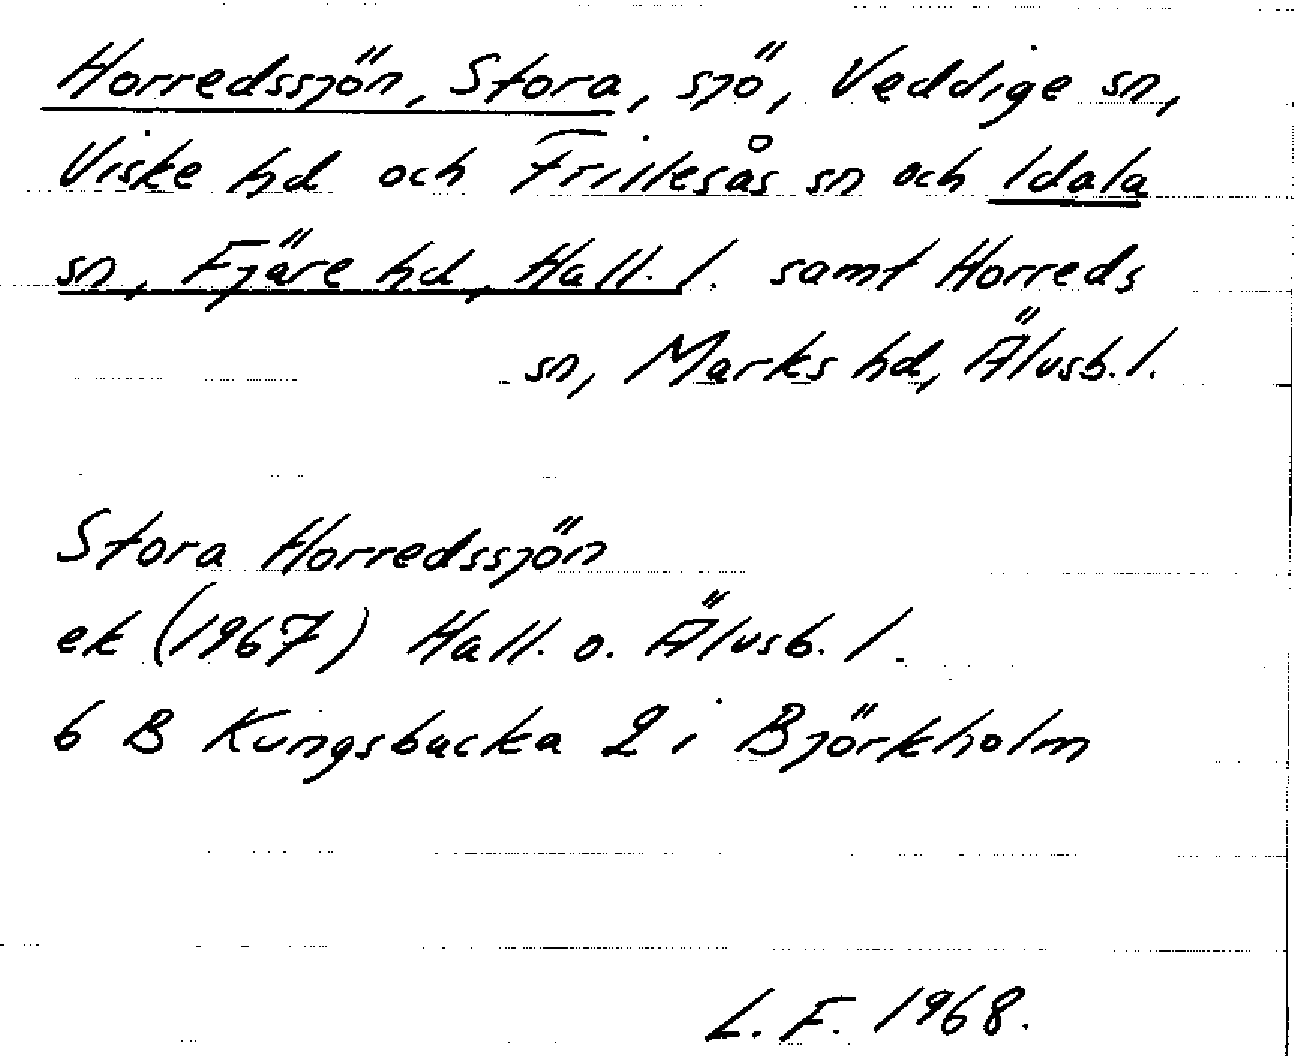 Horredssjön, Stora, sjö, Veddige sn,
Viske hd och Frillesås sn och Idala
sn, Fjäre hd, Hall. l. samt Horreds
sn, Marks hd, Älvsb. l.
Stora Horredssjön
ek (1967) Hall. o. Älvsb. l.
6 B Kungsbacka 2 i Björkholm
L. F. 1968.